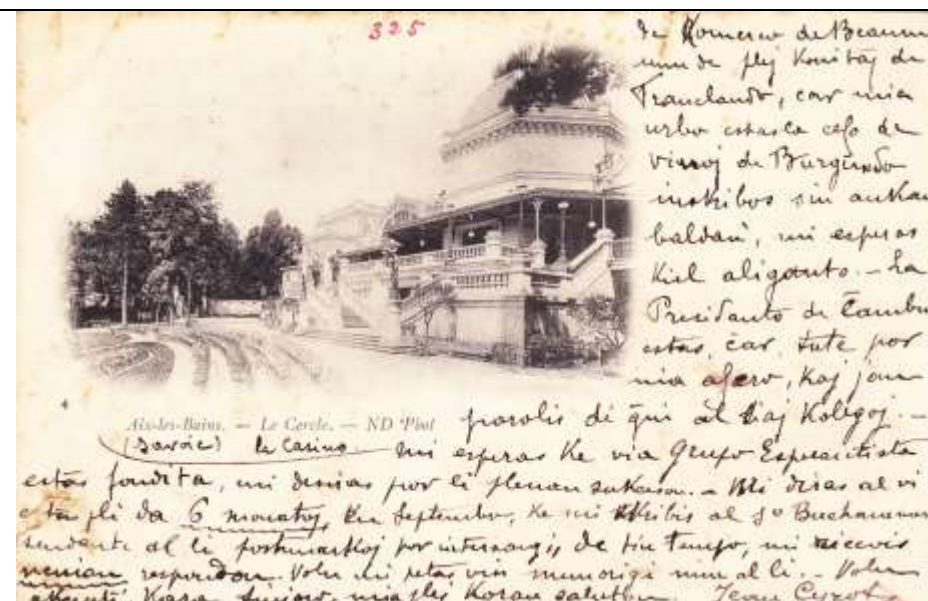 325
de Komerco de Beaune
unu de plej konitaj de
Franclando, car mia
urbo estas la cefo de
vinoj de Burgundo
inskribos sin ankau
baldau, mi esperas
kiel aliganto. — La
Presidanto de Cambro
estas, car, tute por
nia afero, kaj jam
Aix-les-Bains. — Le Cercle. — ND Phot
parolis di gin al liaj Kolegoj. —
(Savoie) le Casino — mi esperas ke via Grupo Esperantista
estas fondita, mi deziras por li plenan sukceson. — Mi diras al vi
pli da 6 monatoj, en Septembro, ke mi skribis al So Buchanan
sendante al li postmarkoj por intersangi, de tiu tempo, mi ricevis
nenian respondon. Volu mi petas vin memorigi min al li. — Volu
Kara Sinjoro, mia plej Koran saluton. Jean Cyrot